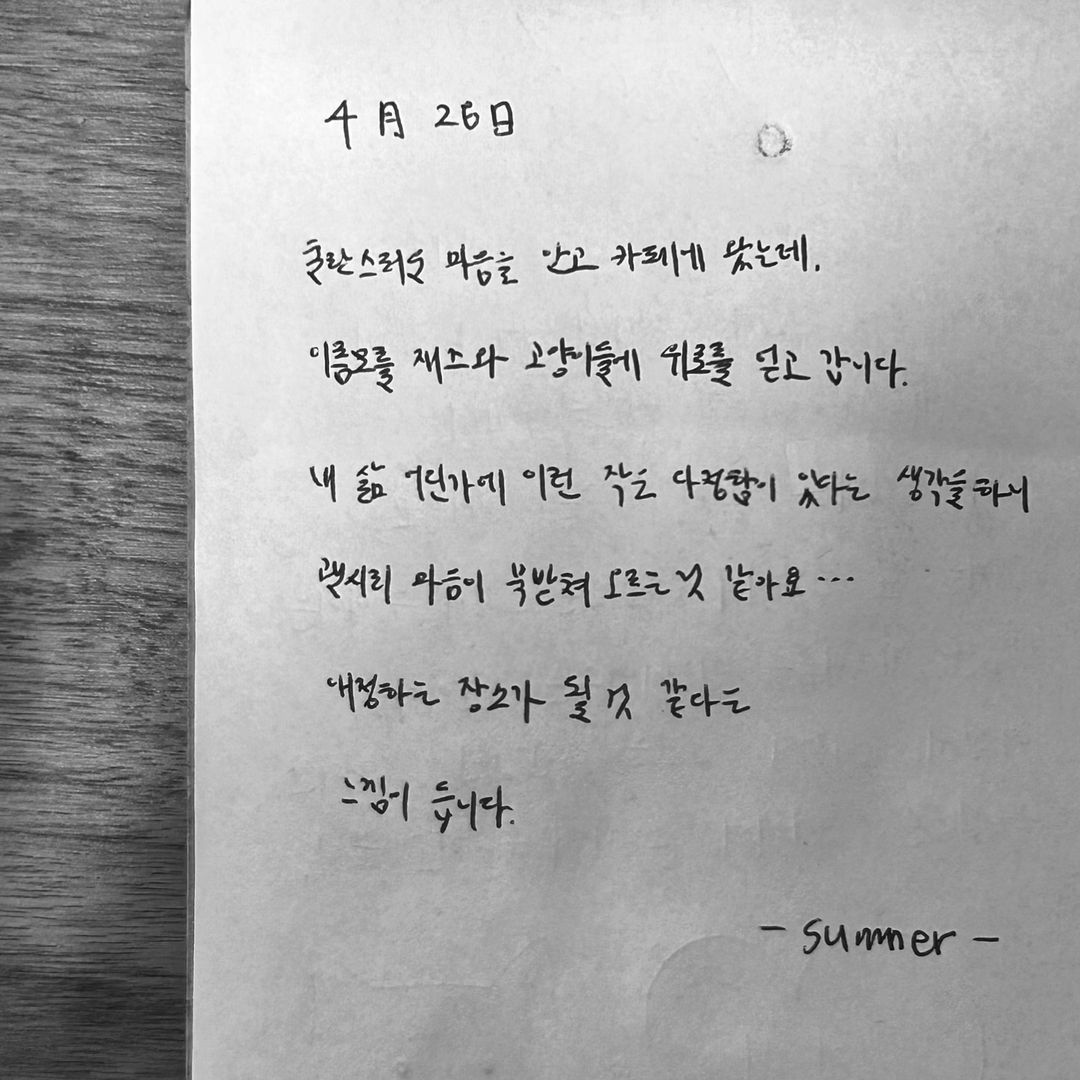 4月 26日
혼란스러운 마음을 안고 카페에 왔는데,
이름모를 재즈와 고양이들에게 위로를 얻고 갑니다.
내 삶 어딘가에 이런 작은 다정함이 있다는 생각을 하니
괜시리 마음이 북받쳐 오르는 것 같아요...
애정하는 장소가 될 것 같다는
느낌이 듭니다.
- summer -